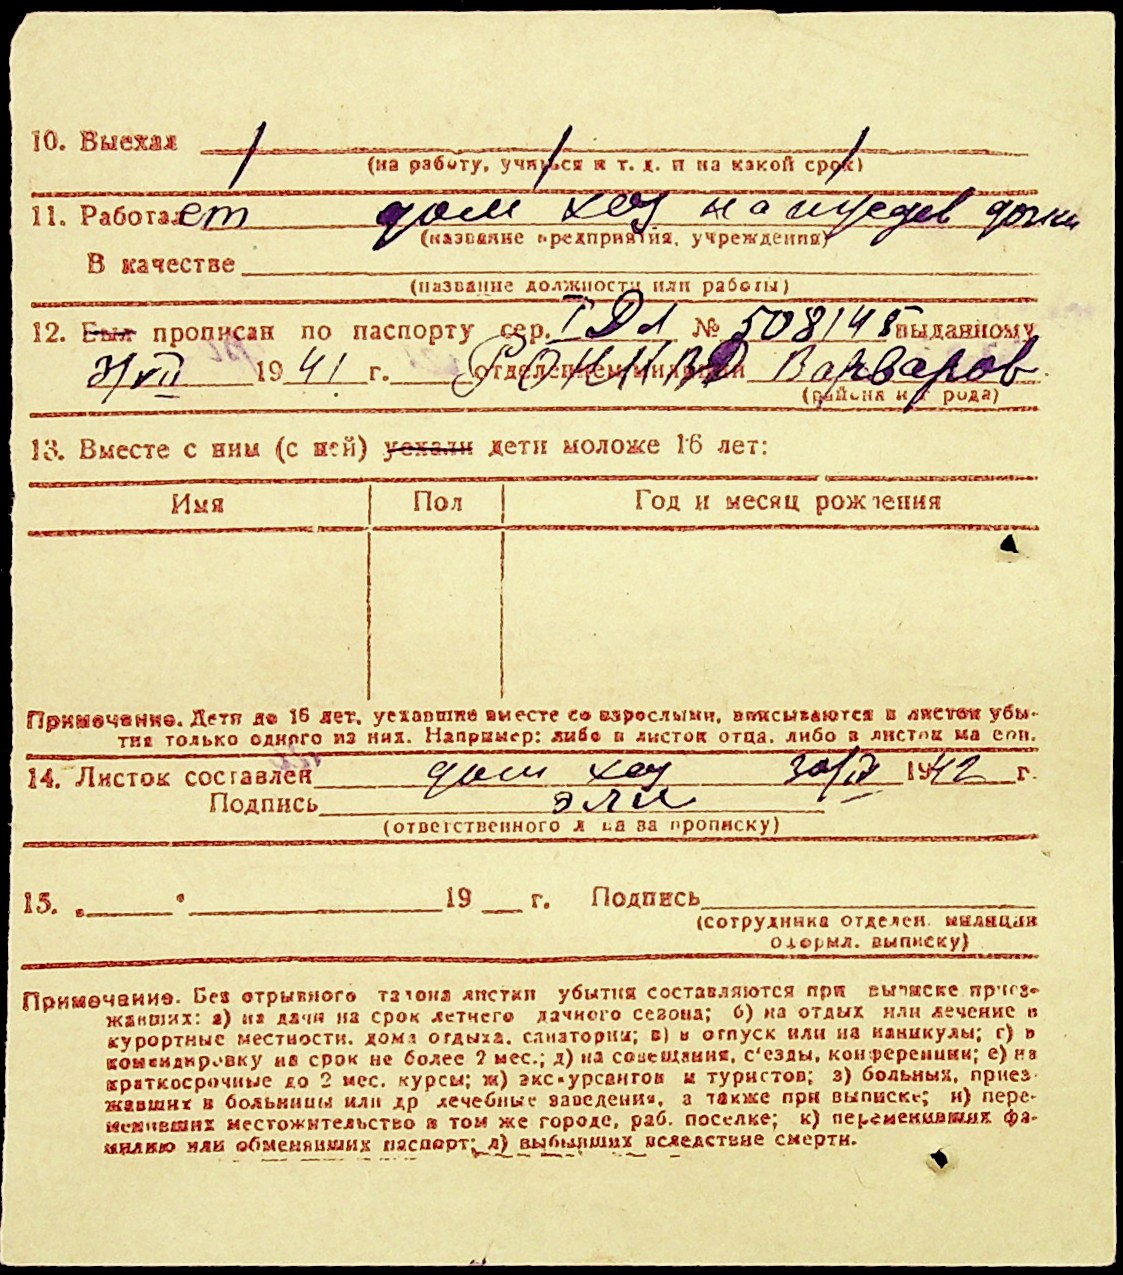 10. Выехал
(на работу, учиться и т. д. и на какой срок)
11. Работает дом хоз на иждев дочки
(название предприятия, учреждения)
В качестве
(название должности или работы)
12. Был прописан по паспорту сер. № 508148 выданному
1941 г. РО НКВД Варваров
(района и города)
13. Вместе с ним (с ней) уехали дети моложе 16 лет:
Имя Пол Год и месяц рождения
Примечание. Дети до 16 лет, уехавшие вместе со взрослыми, вписываются в листок убы-
тия только одного из них. Например: либо в листок отца, либо в листок матери.
14. Листок составлен дом хоз 1942 г.
Подпись
(ответственного лица за прописку)
15. „ " 19 г. Подпись
(сотрудника отделен. милиции
оформл. выписку)
Примечание. Без отрывного талона листки убытия составляются при выписке приез-
жавших: а) на дачи на срок летнего дачного сезона; б) на отдых или лечение в
курортные местности, дома отдыха, санатории; в) в отпуск или на каникулы; г) в
командировку на срок не более 2 мес.; д) на совещания, с'езды, конференции; е) на
краткосрочные до 2 мес. курсы; ж) экскурсантов и туристов; з) больных, приез-
жавших в больницы или др лечебные заведения, а также при выписке; и) пере-
менивших местожительство в том же городе, раб. поселке; к) переменивших фа-
милию или обменявших паспорт; л) выбывших вследствие смерти.